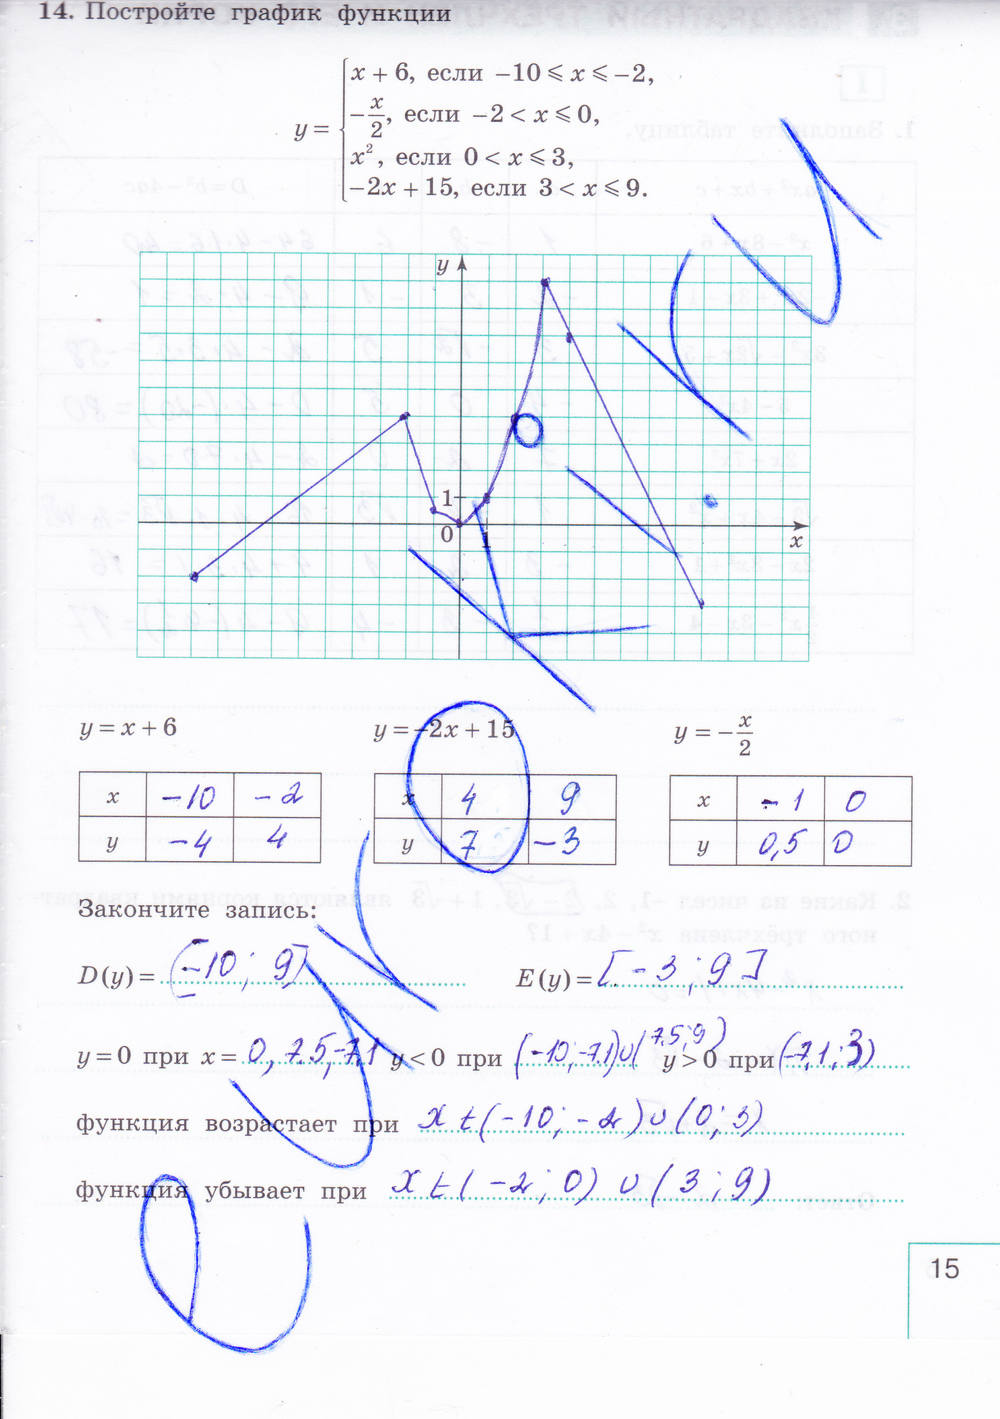 14. Постройте график функции
x + 6, если −10 ⩽ x ⩽ −2,
y = −x/2, если −2 < x ⩽ 0,
x², если 0 < x ⩽ 3,
−2x + 15, если 3 < x ⩽ 9.
y
1
0
x
y = x + 6 y = −2x + 15 y = −x/2
x −10 −2 x 4 9 x −1 0
y −4 4 y 7 −3 y 0,5 0
Закончите запись:
D(y) = [−10; 9] E(y) = [−3; 9]
y = 0 при x = 0, 7.5, −7,1 y < 0 при (−10; −7,1) ∪ (7,5; 9) y > 0 при (−7,1; 3)
функция возрастает при x t (−10; −2) ∪ (0; 3)
функция убывает при x t (−2; 0) ∪ (3; 9)
15